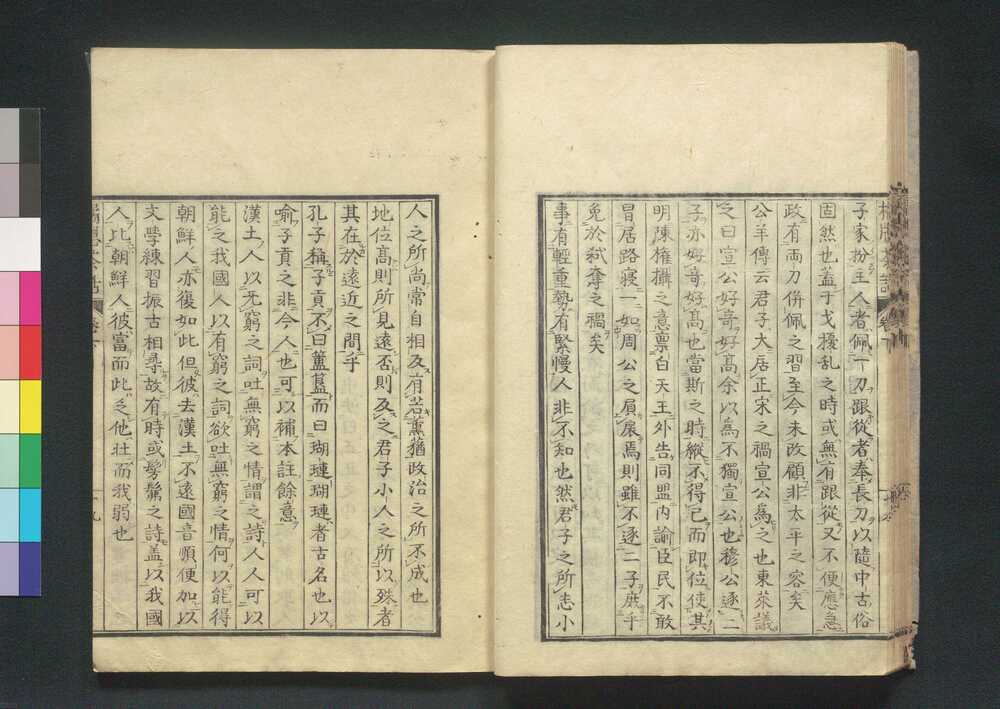 子家扮主人者佩一刀跟從者奉長刀以隨中古俗
固然也蓋于戈擾亂之時或無有跟從又不便應急
政有両刀併佩之習至今未改顧非太平之容矣
公羊傳云君子大居正宋之禍宣公為之也東萊議
之曰宣公好竒好髙余以為不獨宣公也穆公逐二
子亦好竒好髙也當斯之時縱不得已而即位使其
明陳権攝之意禀白天王外告同盟内諭臣民不敢
冒居路寝一如周公之負扆焉則雖不逐二子庶乎
免於弑奪之禍矣
事有輕重勢有緊慢人非不知也然君子之所志小
人之所尚常自相及有若薫蕕政治之所不成也
地位髙則所見遠否則及之君子小人之所以殊者
其在於遠近之間乎
孔子稱子貢不曰簠簋而曰瑚璉瑚璉者古名也以
喻子貢之非今人也可以補本註餘意
漢土人以无窮之詞吐無窮之情謂之詩人人可以
能之我國人以有窮之詞欲吐無窮之情何以能得
朝鮮人亦復如此但彼去漢土不遠國音順便加以
文學練習振古相尋故有時或髣髴之詩蓋以我國
人比朝鮮人彼富而此乏他壮而我弱也